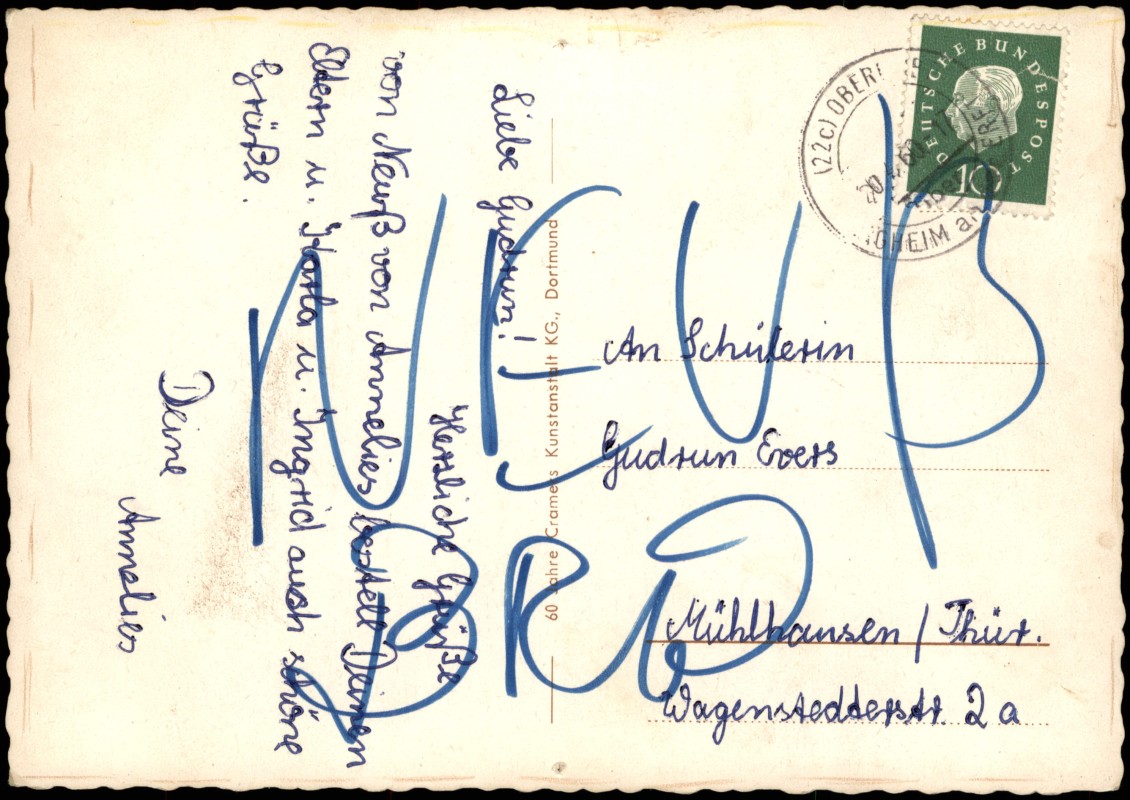 Liebe Gudrun!
Herzliche Grüße
von Neuß von Annelies bestell Deinen
Eltern u. Karla u. Ingrid auch schöne
Grüße.
Deine
Annelies
60 Jahre Cramers Kunstanstalt KG., Dortmund
DEUTSCHE BUNDESPOST
10
(22c) OBERL
GHEIM a
An Schülerin
Gudrun Evers
Mühlhausen / Thür.
Wagenstedterstr. 2 a
NEUß
BRD